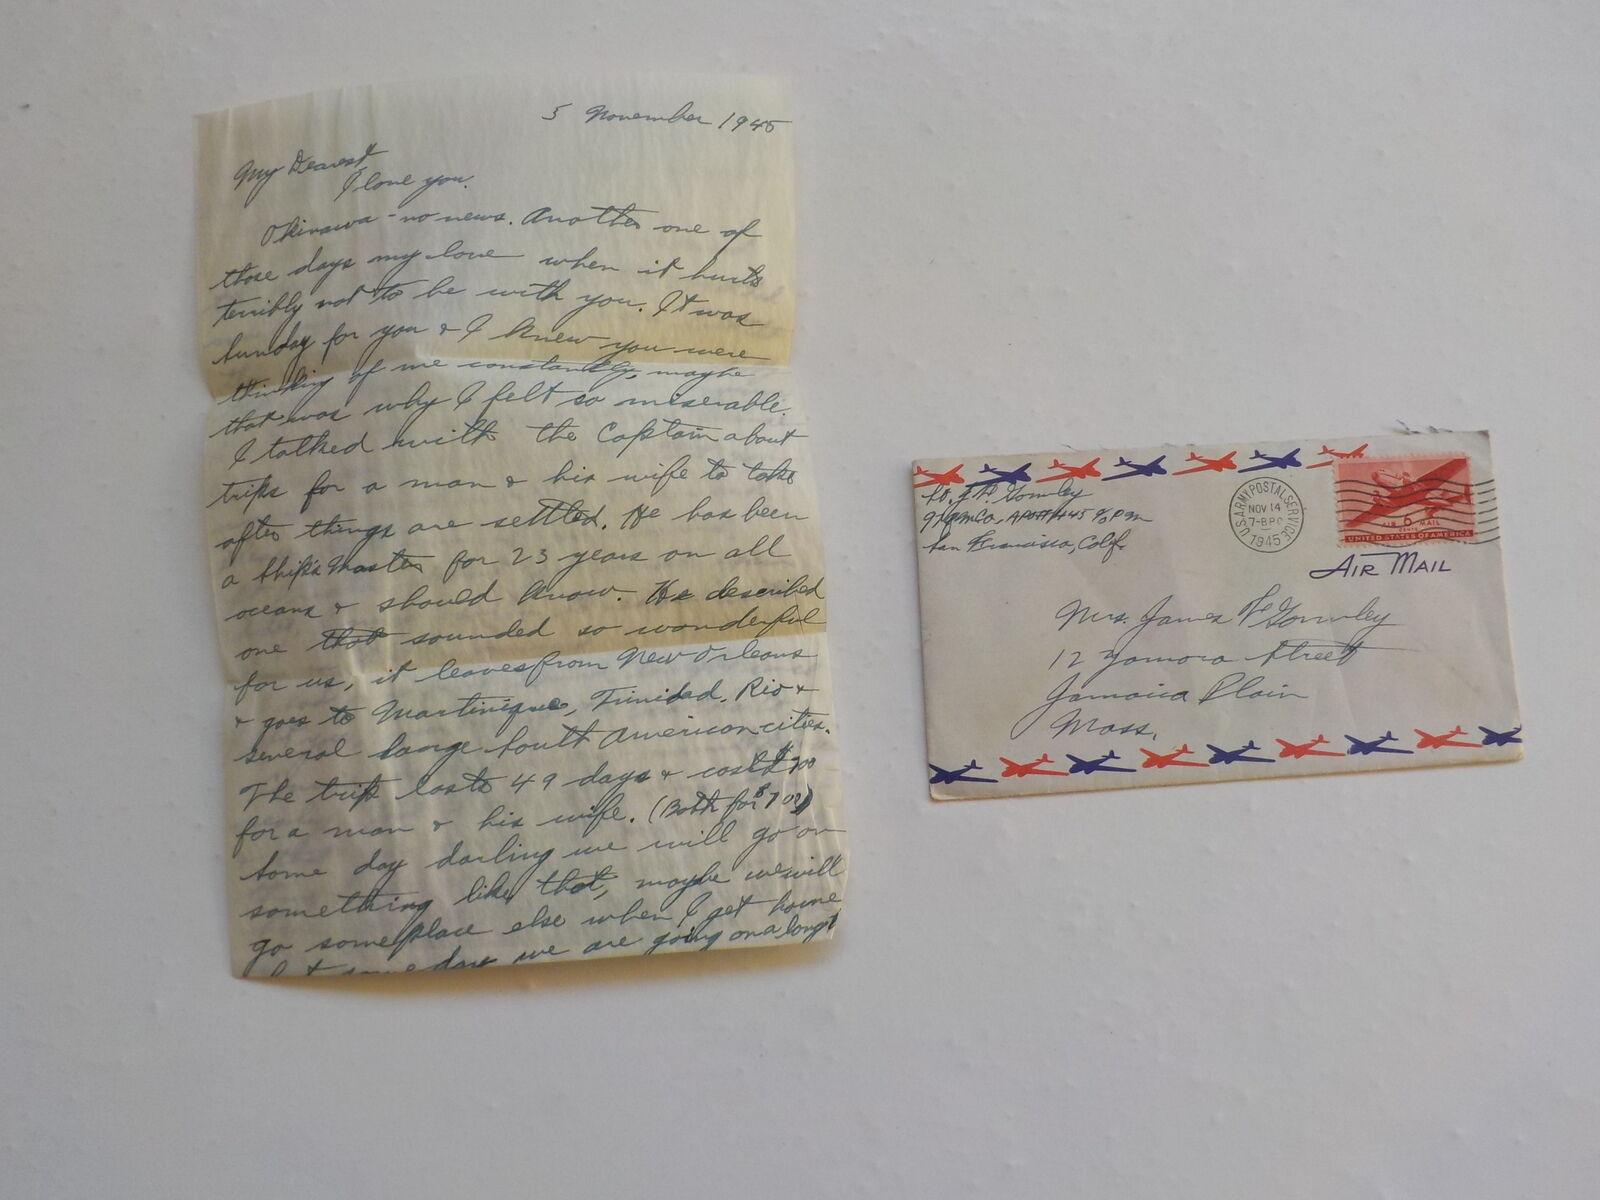 5 November 1945
My Dearest
I love you.
Okinawa - no news. Another one of
those days my love when it hurts
terribly not to be with you. It was
Sunday for you & I knew you were
thinking of me constantly, maybe
that was why I felt so miserable.
I talked with the Captain about
trips for a man & his wife to take
after things are settled. He has been
a Ship's Master for 23 years on all
oceans & should know. He described
one that sounded so wonderful
for us, it leaves from New Orleans
& goes to Martinique, Trinidad, Rio &
several large South American cities.
The trip lasts 49 days & costs $700
for a man & his wife. (Both for $700)
Some day darling we will go on
something like that, maybe we will
go someplace else when I get home
but someday we are going on a long
Lt. J. H. Gormley
QM Co, APO 445 % P M
San Francisco, Calif.
U.S. ARMY POSTAL SERVICE
NOV 14
7-8PC
1945
AIR 6 MAIL
CENTS
UNITED STATES OF AMERICA
AIR MAIL
Mrs. James H Gormley
12 Zamora Street
Jamaica Plain
Mass.